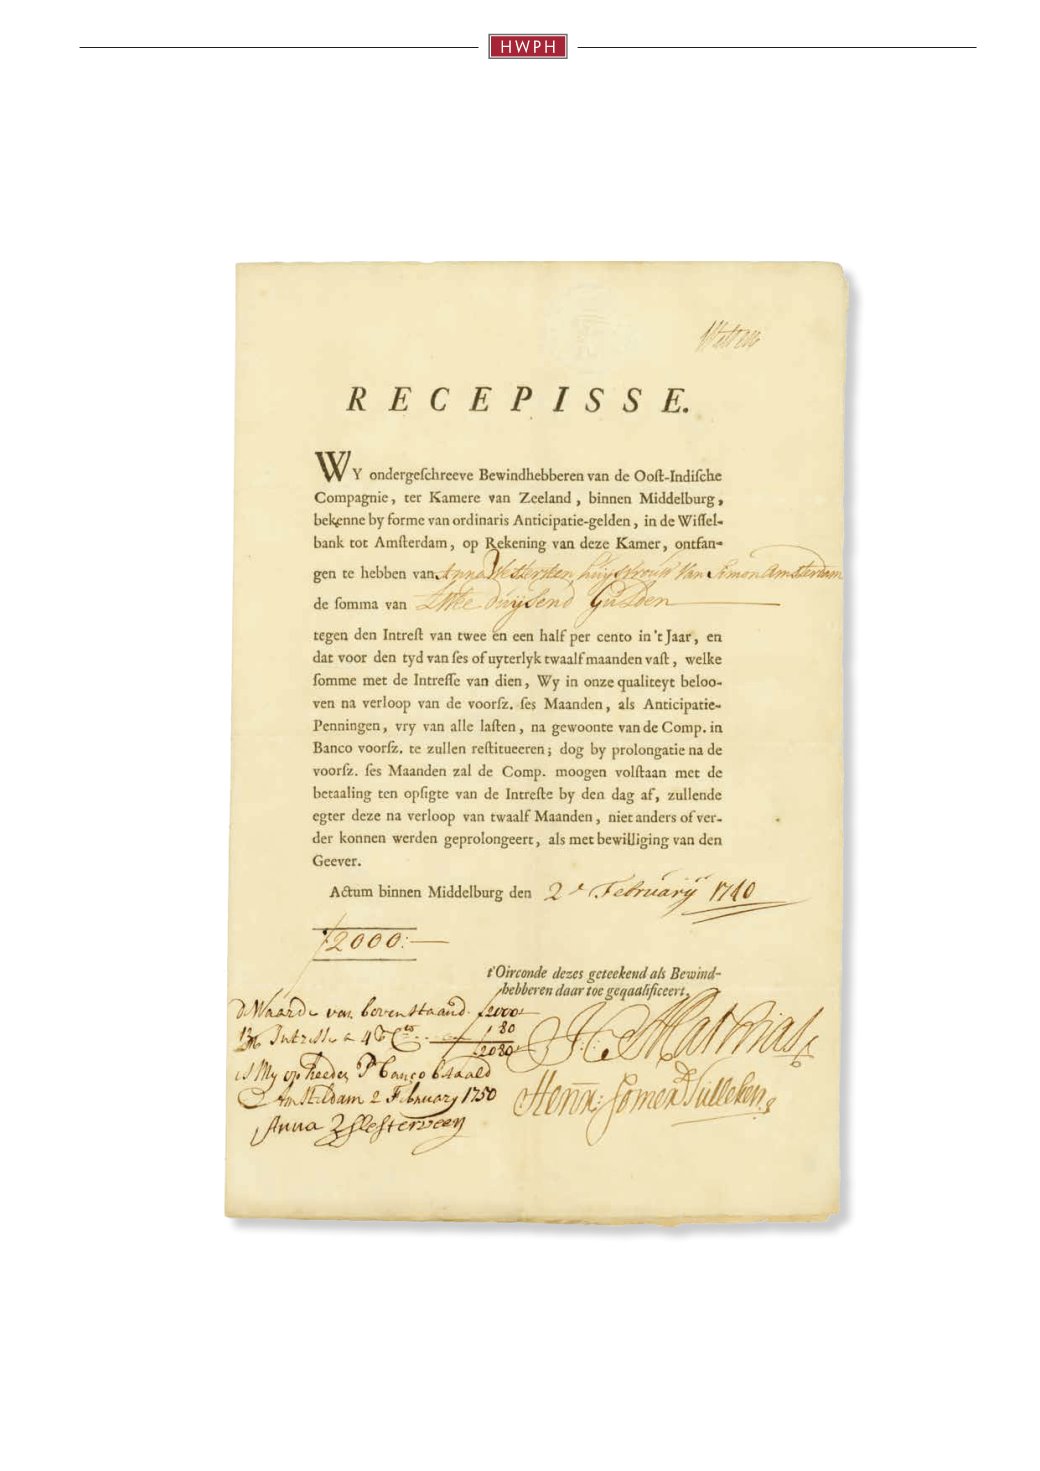 HWPH
RECEPISSE.
WY ondergeſchreeve Bewindhebberen van de Ooſt-Indiſche
Compagnie, ter Kamere van Zeeland, binnen Middelburg,
bekenne by forme van ordinaris Anticipatie-gelden, in de Wiſſel-
bank tot Amſterdam, op Rekening van deze Kamer, ontfan-
gen te hebben van Anna huysvrouw van Simon Amsterdam
de ſomma van Twee duysend Gulden
tegen den Intreſt van twee en een half per cento in 't Jaar, en
dat voor den tyd van ſes of uyterlyk twaalf maanden vaſt, welke
ſomme met de Intreſſe van dien, Wy in onze qualiteyt beloo-
ven na verloop van de voorſz. ſes Maanden, als Anticipatie-
Penningen, vry van alle laſten, na gewoonte van de Comp. in
Banco voorſz. te zullen reſtitueeren; dog by prolongatie na de
voorſz. ſes Maanden zal de Comp. moogen volſtaan met de
betaaling ten opſigte van de Intreſte by den dag af, zullende
egter deze na verloop van twaalf Maanden, niet anders of ver-
der konnen werden geprolongeert, als met bewilliging van den
Geever.
Actum binnen Middelburg den 2e February 1740
ƒ2000:—
t'Oirconde dezes geteekend als Bewind-
hebberen daar toe geqaalificeert,
d'Waarde van bovenstaand ƒ2000:—
Intresse a 4 P Cto ƒ 80
ƒ2080:—
is My op heeden P Banco betaald
Amsteldam 2 February 1750
Anna Westerveen
J: C: Matthias